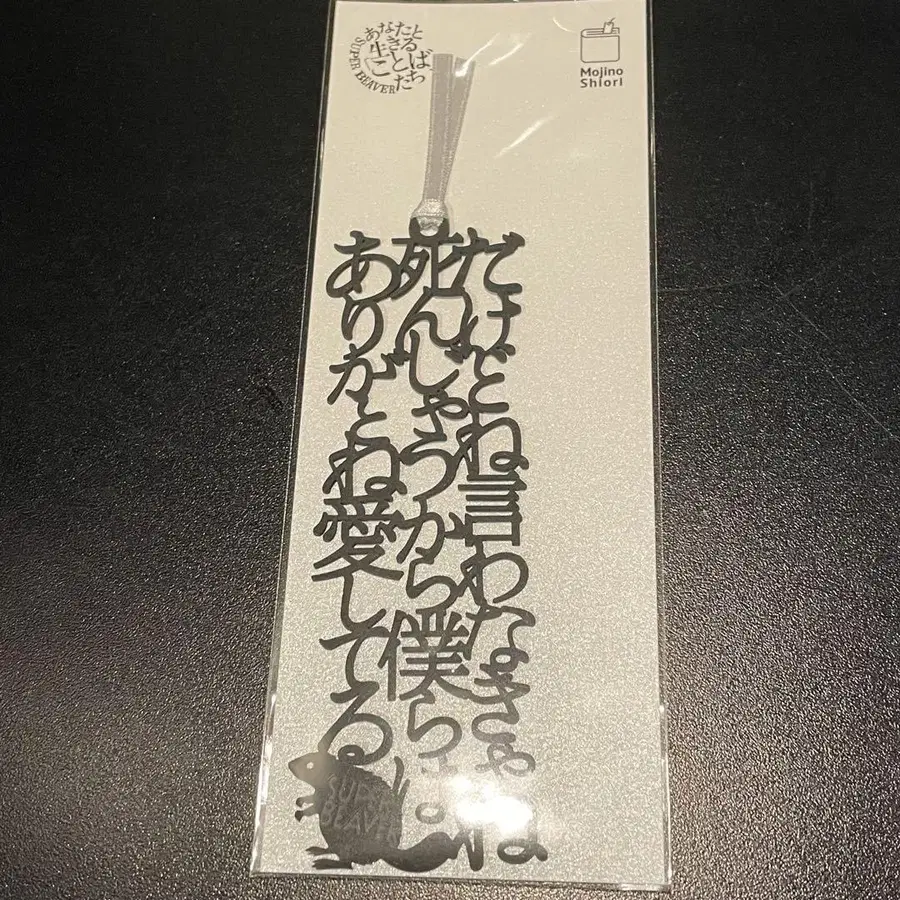 あなたと
生きる
ことばたち
SUPER BEAVER
Mojino
Shiori
だけどね言わなきゃね
死んじゃうから僕ら
ありがとね愛してる
SUPER
BEAVER